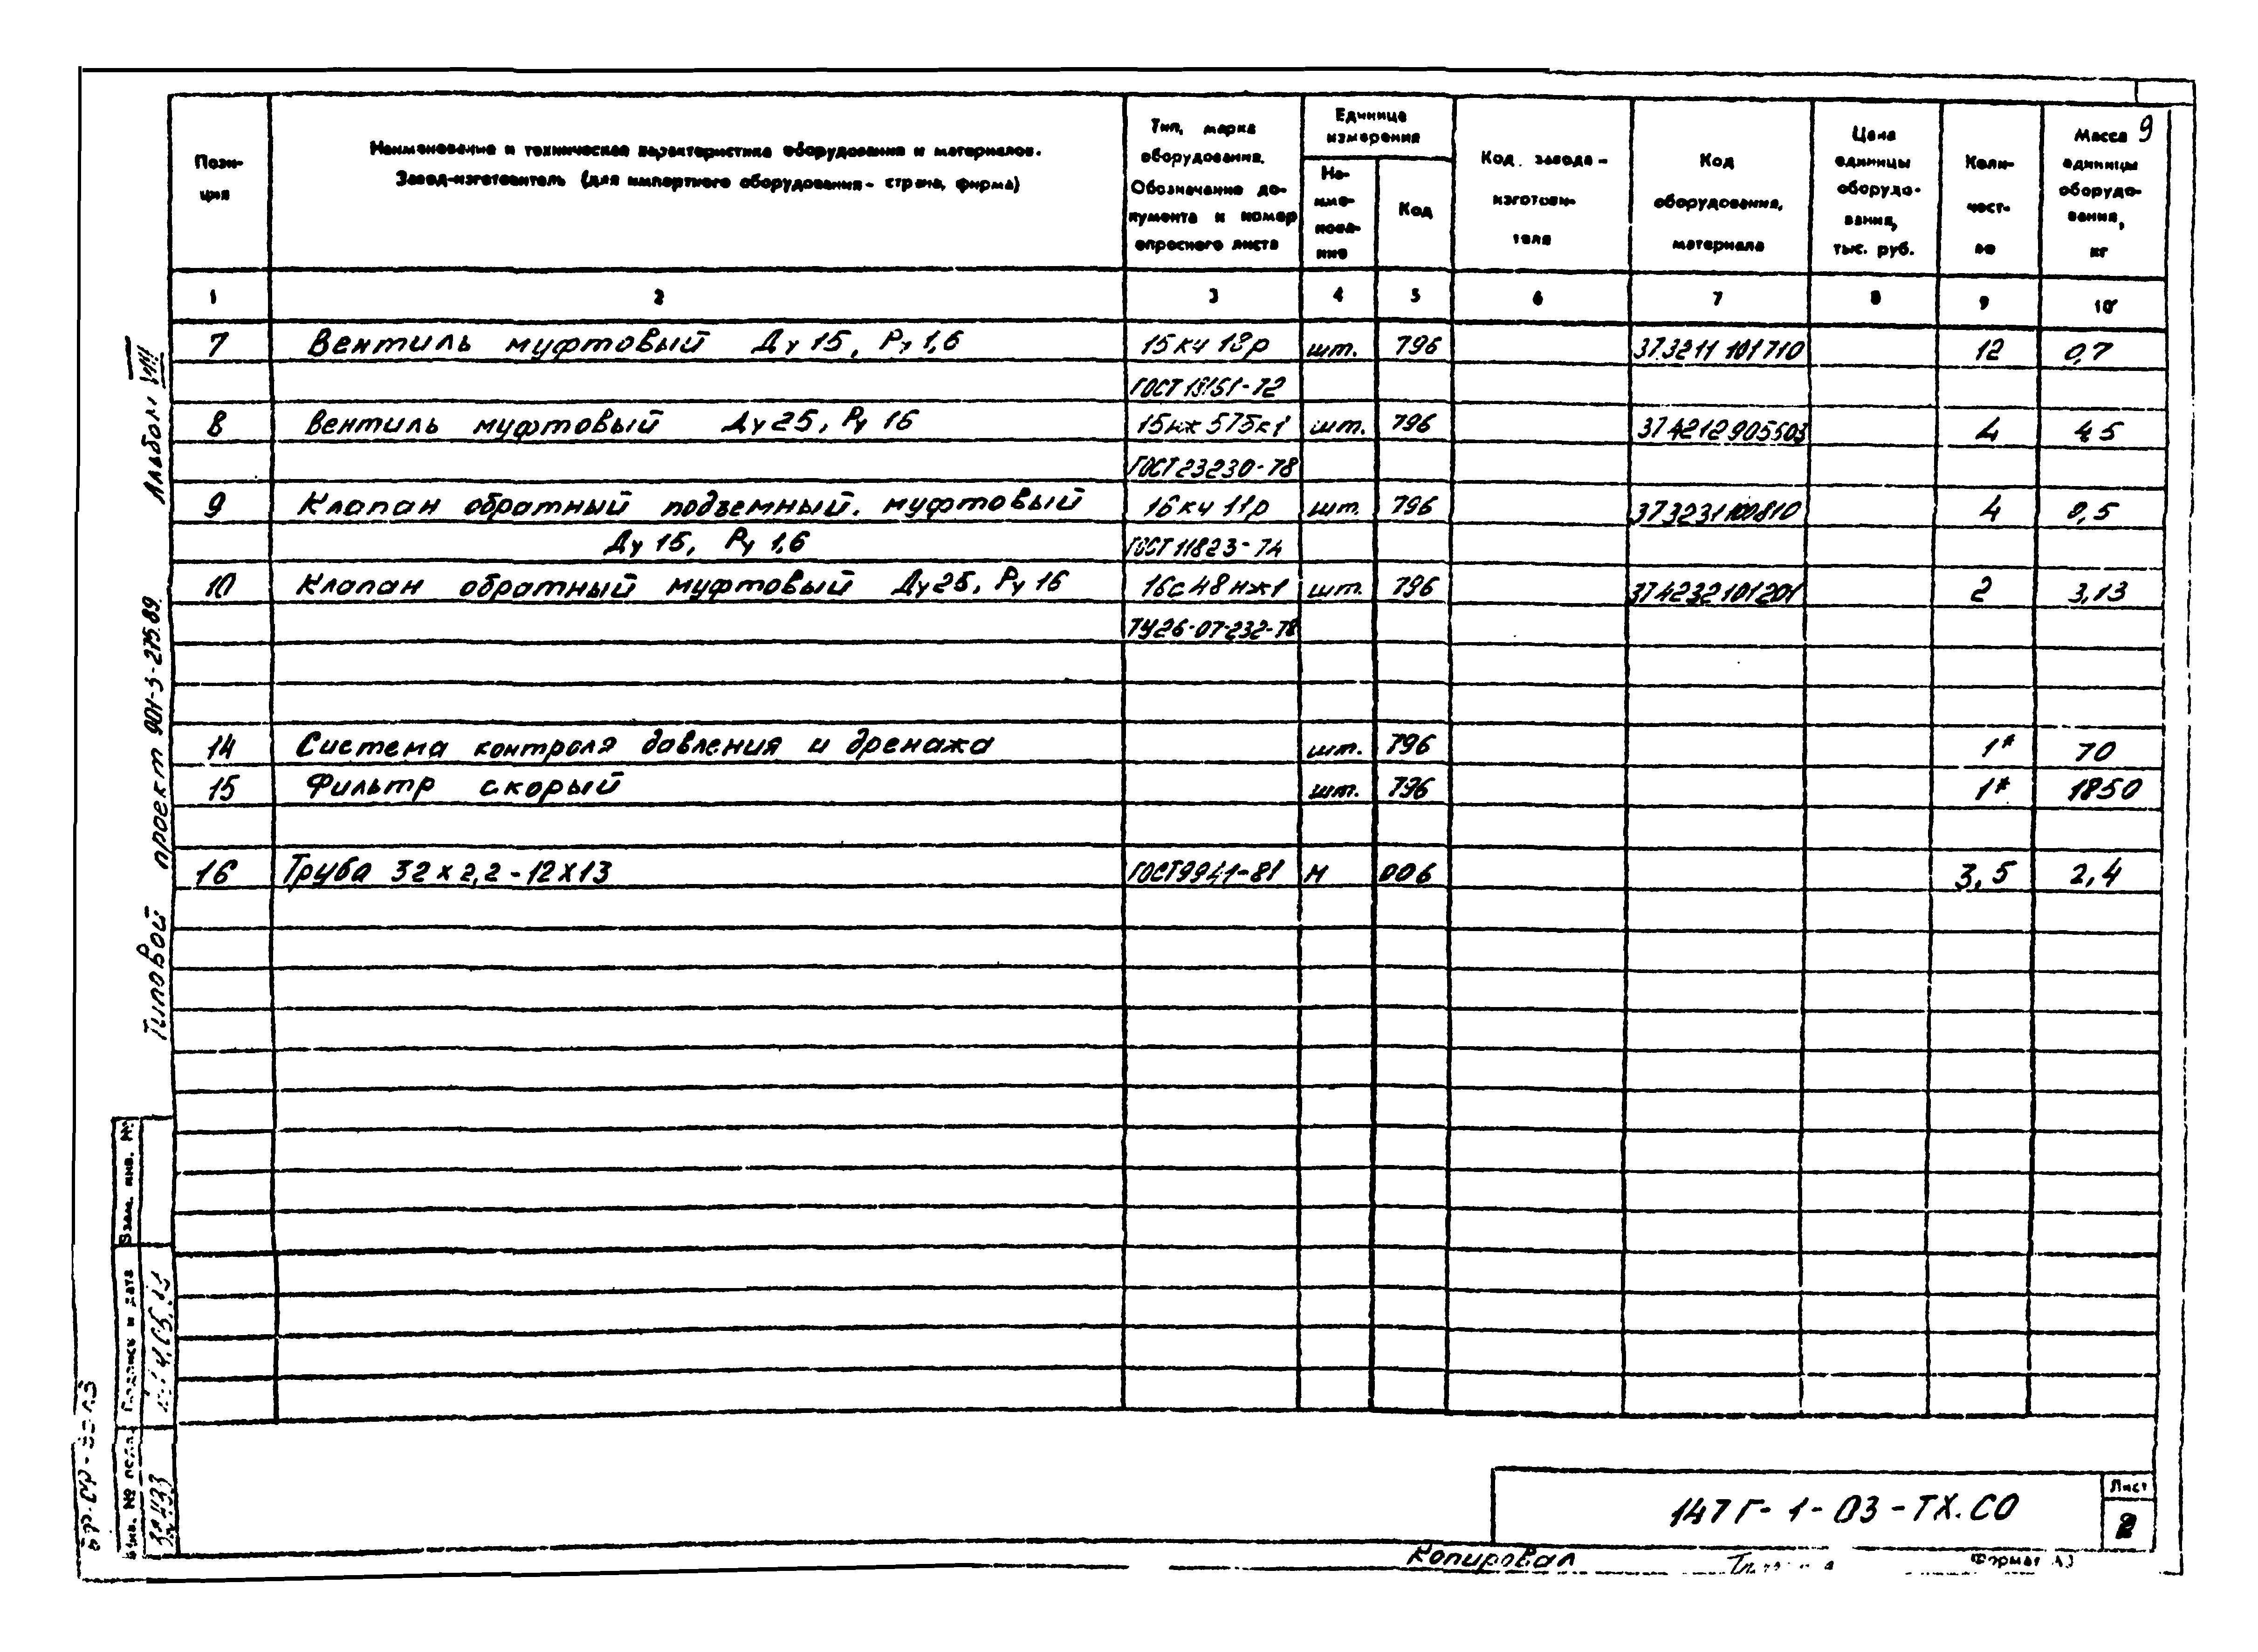 9
Пози-
ция
Наименование и техническая характеристика оборудования и материалов.
Завод-изготовитель (для импортного оборудования - страна, фирма)
Тип, марка
оборудования.
Обозначение до-
кумента и номер
опросного листа
Единица
измерения
На-
име-
нова-
ние
Код
Код завода-
изготови-
теля
Код
оборудования,
материала
Цена
единицы
оборудо-
вания,
тыс. руб.
Коли-
чест-
во
Масса
единицы
оборудо-
вания,
кг
1 2 3 4 5 6 7 8 9 10
7 Вентиль муфтовый Ду 15, Ру 1,6 15кч 18р шт. 796 373211 101710 12 0,7
ГОСТ 18161-72
8 Вентиль муфтовый Ду 25, Ру 16 15нж 575к1 шт. 796 374212905503 4 4,5
ГОСТ 23230-78
9 Клапан обратный подъемный. муфтовый 16кч 11р шт. 796 373231100810 4 0,5
Ду 15, Ру 1,6 ГОСТ 11823-74
10 Клапан обратный муфтовый Ду 25, Ру 16 16с48нж1 шт. 796 374232101201 2 3,13
ТУ26-07-232-78
14 Система контроля давления и дренажа шт. 796 1* 70
15 Фильтр скорый шт. 796 1* 1850
16 Труба 32х2,2-12Х13 ГОСТ 9941-81 М 006 3,5 2,4
Альбом VIII
Типовой проект 901-3-275.89
Взам. инв. №
Подпись и дата
Инв. № подл.
147Г-1-03-ТХ.СО
Лист
2
Копировал
Формат А3